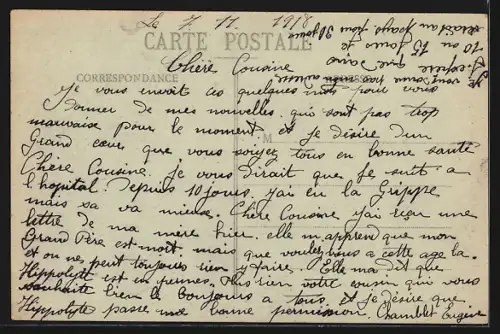 Le 7 11 1918
CARTE POSTALE
CORRESPONDANCE
Chère Cousine
Je vous envoit ces quelques mots pour vous
donner de mes nouvelles, qui sont pas trop
mauvaise pour le moment et je désire d'un
Grand cœur que vous soyez tous en bonne santé
Chère Cousine. je vous dirait que je suit a
l'hopital. Depuis 10 jours. j'ai eu la Grippe
mais sa va mieux. Chère Cousine j'ai reçu une
lettre de ma mère hier. elle m'apprend que mon
Grand Père est mort. mais que voulez vous a cette age la.
et on ne peut toujours rien y faire. Elle ma dit que
Hippolyte est en permes. Plus rien votre cousin qui vous
souhaite bien le bonjours a tous. et je désire que
Hippolyte passe une bonne permission. Chamblet Eugène
10 ou 15 jours je
serait au pays pour 30 jours